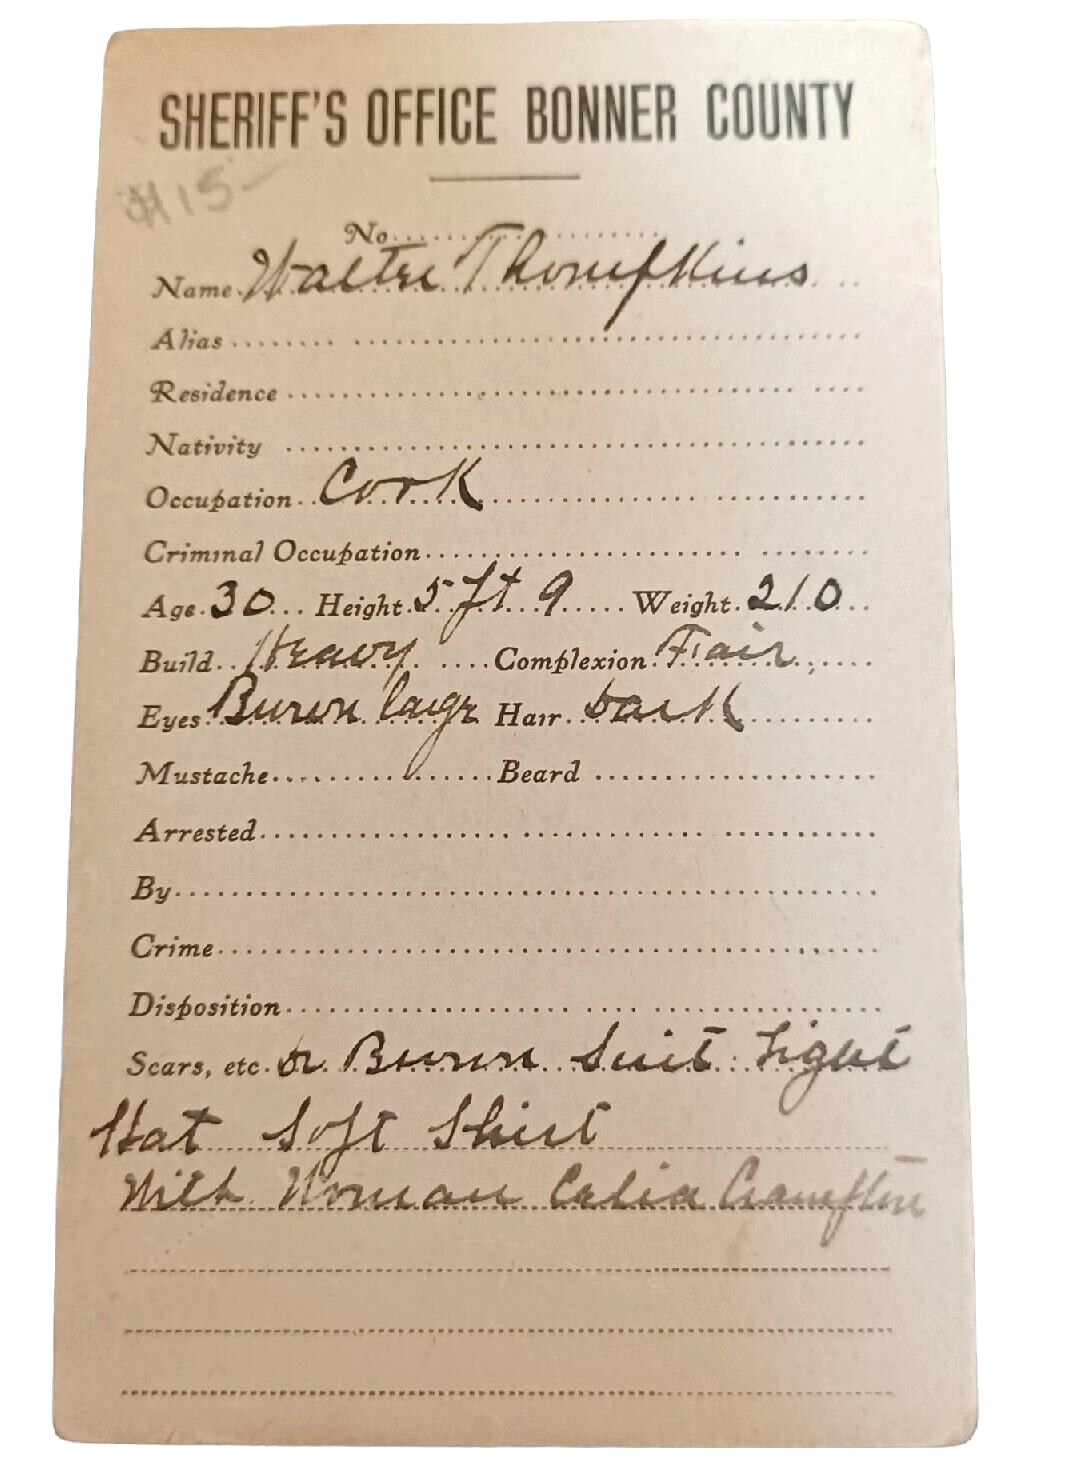 SHERIFF'S OFFICE BONNER COUNTY
$15-
No.
Name Walter Thompkins
Alias
Residence
Nativity
Occupation Cook
Criminal Occupation
Age 30 Height 5 ft 9 Weight 210
Build Heavy Complexion Fair
Eyes Brown large Hair dark
Mustache Beard
Arrested
By
Crime
Disposition
Scars, etc. Brown Suit Light
Hat Soft Shirt
With Woman Celia Crampton